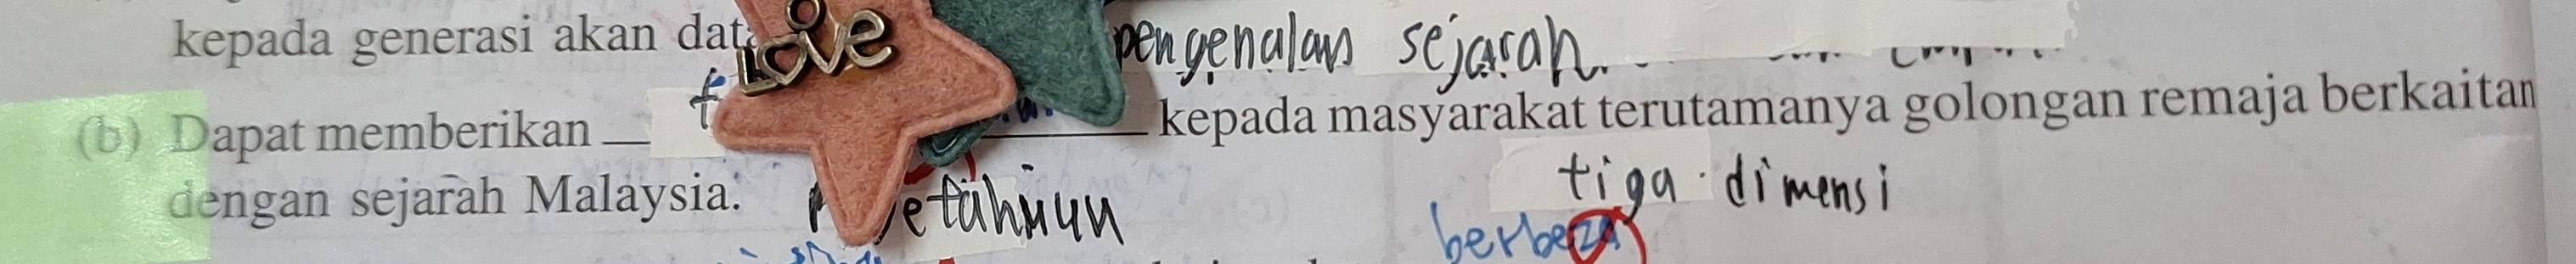 kepada generasi akan data
LOVE
pengenalan sejarah.
(b) Dapat memberikan kepada masyarakat terutamanya golongan remaja berkaitan
dengan sejarah Malaysia.
tiga dimensi
berbeza